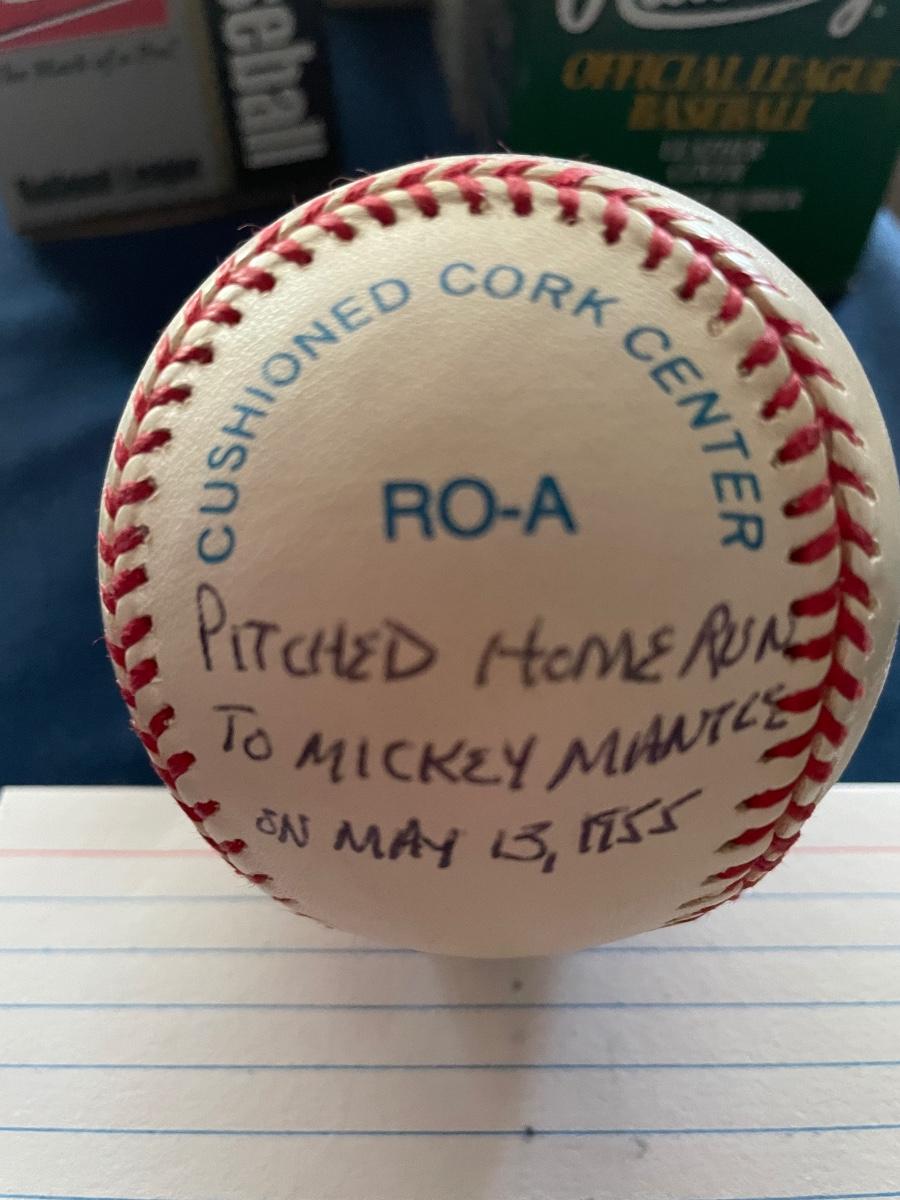 eball
National League
OFFICIAL LEAGUE
BASEBALL
CUSHIONED CORK CENTER
RO-A
PITCHED HOME RUN
TO MICKEY MANTLE
ON MAY 13, 1955